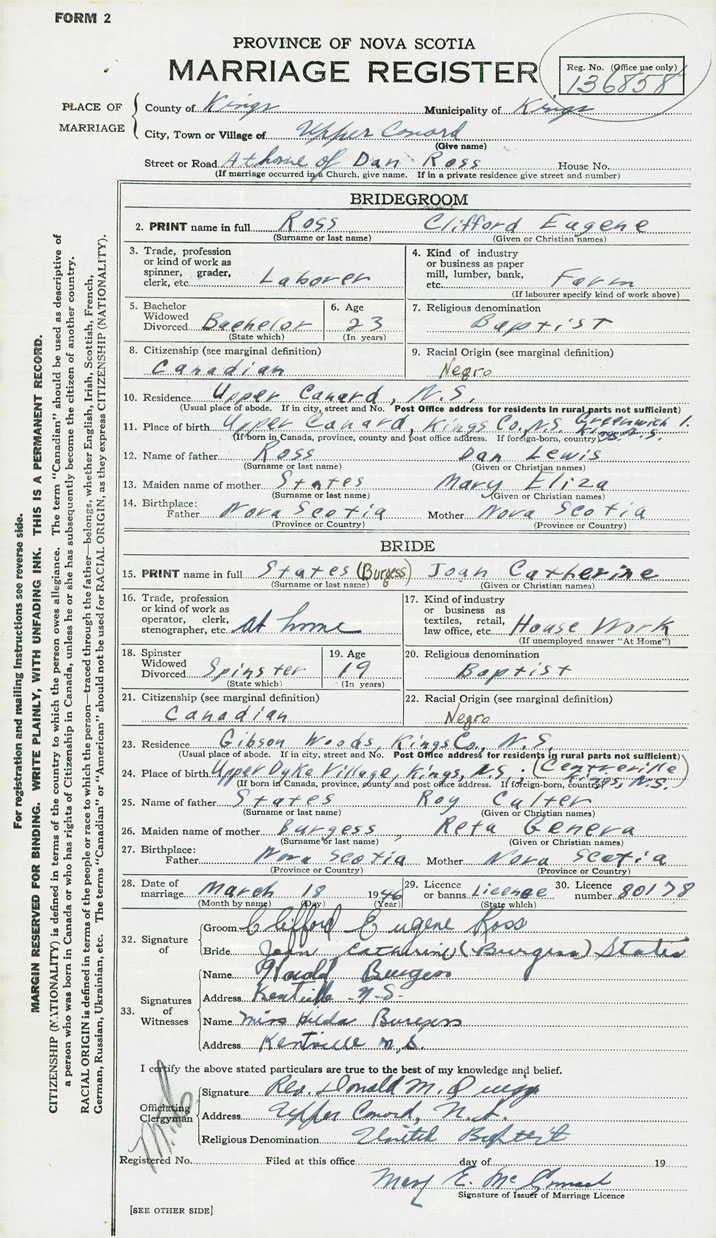 FORM 2
PROVINCE OF NOVA SCOTIA
MARRIAGE REGISTER
Reg. No. (Office use only)
136858
PLACE OF MARRIAGE
County of Kings Municipality of Kings
City, Town or Village of Upper Canard
(Give name)
Street or Road At home of Dan Ross House No.
(If marriage occurred in a Church, give name. If in a private residence give street and number)
BRIDEGROOM
2. PRINT name in full Ross Clifford Eugene
(Surname or last name) (Given or Christian names)
3. Trade, profession or kind of work as spinner, grader, clerk, etc. Laborer
4. Kind of industry or business as paper mill, lumber, bank, etc. Farm
(If labourer specify kind of work above)
5. Bachelor Widowed Divorced Bachelor (State which)
6. Age 23 (In years)
7. Religious denomination Baptist
8. Citizenship (see marginal definition) Canadian
9. Racial Origin (see marginal definition) Negro
10. Residence Upper Canard, N.S.
(Usual place of abode. If in city, street and No. Post Office address for residents in rural parts not sufficient)
11. Place of birth Upper Canard, Kings Co. N.S. Greenwich Kings N.S.
(If born in Canada, province, county and post office address. If foreign-born, country)
12. Name of father Ross Dan Lewis
(Surname or last name) (Given or Christian names)
13. Maiden name of mother States Mary Eliza
(Surname or last name) (Given or Christian names)
14. Birthplace: Father Nova Scotia Mother Nova Scotia
(Province or Country) (Province or Country)
BRIDE
15. PRINT name in full States (Burgess) Joan Catherine
(Surname or last name) (Given or Christian names)
16. Trade, profession or kind of work as operator, clerk, stenographer, etc. at home
17. Kind of industry or business as textiles, retail, law office, etc. House Work
(If unemployed answer "At Home")
18. Spinster Widowed Divorced Spinster (State which)
19. Age 19 (In years)
20. Religious denomination Baptist
21. Citizenship (see marginal definition) Canadian
22. Racial Origin (see marginal definition) Negro
23. Residence Gibson Woods, Kings Co., N.S.
(Usual place of abode. If in city, street and No. Post Office address for residents in rural parts not sufficient)
24. Place of birth Upper Dyke Village, Kings, N.S. (Centreville) Kings, N.S.
(If born in Canada, province, county and post office address. If foreign-born, country)
25. Name of father States Roy Calter
(Surname or last name) (Given or Christian names)
26. Maiden name of mother Burgess Reta Geneva
(Surname or last name) (Given or Christian names)
27. Birthplace: Father Nova Scotia Mother Nova Scotia
(Province or Country) (Province or Country)
28. Date of marriage March 18 1946
(Month by name) (Day) (Year)
29. Licence or banns Licence (State which)
30. Licence number 80178
32. Signature of
Groom Clifford Eugene Ross
Bride Joan Catherine (Burgess) States
33. Signatures of Witnesses
Name Harold Burgess
Address Kentville N.S.
Name Miss Hilda Burgess
Address Kentville N.S.
I certify the above stated particulars are true to the best of my knowledge and belief.
Officiating Clergyman
Signature Rev. Donald M.
Address Upper Canard, N.S.
Religious Denomination United Baptist
Registered No. Filed at this office day of 19
Mary E.
Signature of Issuer of Marriage Licence
[SEE OTHER SIDE]
For registration and mailing instructions see reverse side.
MARGIN RESERVED FOR BINDING. WRITE PLAINLY, WITH UNFADING INK. THIS IS A PERMANENT RECORD.
CITIZENSHIP (NATIONALITY) is defined in terms of the country to which the person owes allegiance. The term "Canadian" should be used as descriptive of
a person who was born in Canada or who has rights of Citizenship in Canada, unless he or she has subsequently become the citizen of another country.
RACIAL ORIGIN is defined in terms of the people or race to which the person—traced through the father—belongs, whether English, Irish, Scottish, French,
German, Russian, Ukrainian, etc. The terms "Canadian" or "American" should not be used for RACIAL ORIGIN, as they express CITIZENSHIP (NATIONALITY).